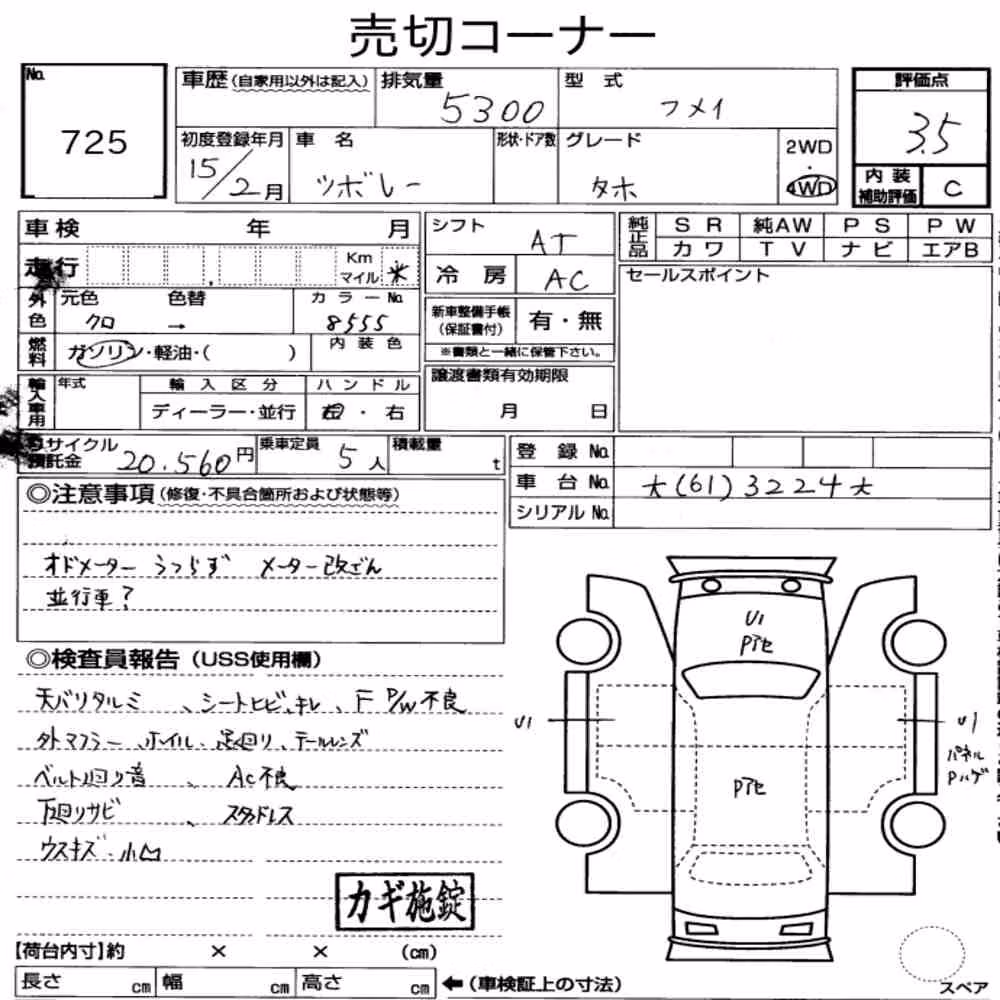 売切コーナー
No.
725
車歴(自家用以外は記入)
排気量
5300
型式
フメイ
評価点
3.5
内装
補助評価
C
初度登録年月
15/2月
車名
シボレー
形状・ドア数
グレード
タホ
2WD
・
4WD
車検 年 月
走行
Km
マイル
*
外色
元色
クロ
色替
→
カラーNo.
8555
燃料
ガソリン・軽油・( )
内装色
輸入車用
年式
輸入区分
ディーラー・並行
ハンドル
左・右
リサイクル
預託金
20.560円
乗車定員
5人
積載量
t
シフト
AT
冷房
AC
新車整備手帳
(保証書付)
有・無
※書類と一緒に保管下さい。
譲渡書類有効期限
月 日
純正品
SR
純AW
PS
PW
カワ
TV
ナビ
エアB
セールスポイント
登録No.
車台No.
★(61)3224★
シリアルNo.
◎注意事項(修復・不具合箇所および状態等)
オドメーター うつらず メーター改ざん
並行車?
◎検査員報告(USS使用欄)
天バリタルミ、シートヒビ、キレ、F P/W不良
外マフラー、ホイル、足回り、テールレンズ
ベルト回り音、AC不良
下廻りサビ、スタッドレス
ウスキズ・小凹
カギ施錠
【荷台内寸】約 × × (cm)
長さ cm 幅 cm 高さ cm
←(車検証上の寸法)
U1
Pアセ
U1
U1
パネル
Pハゲ
Pアセ
スペア